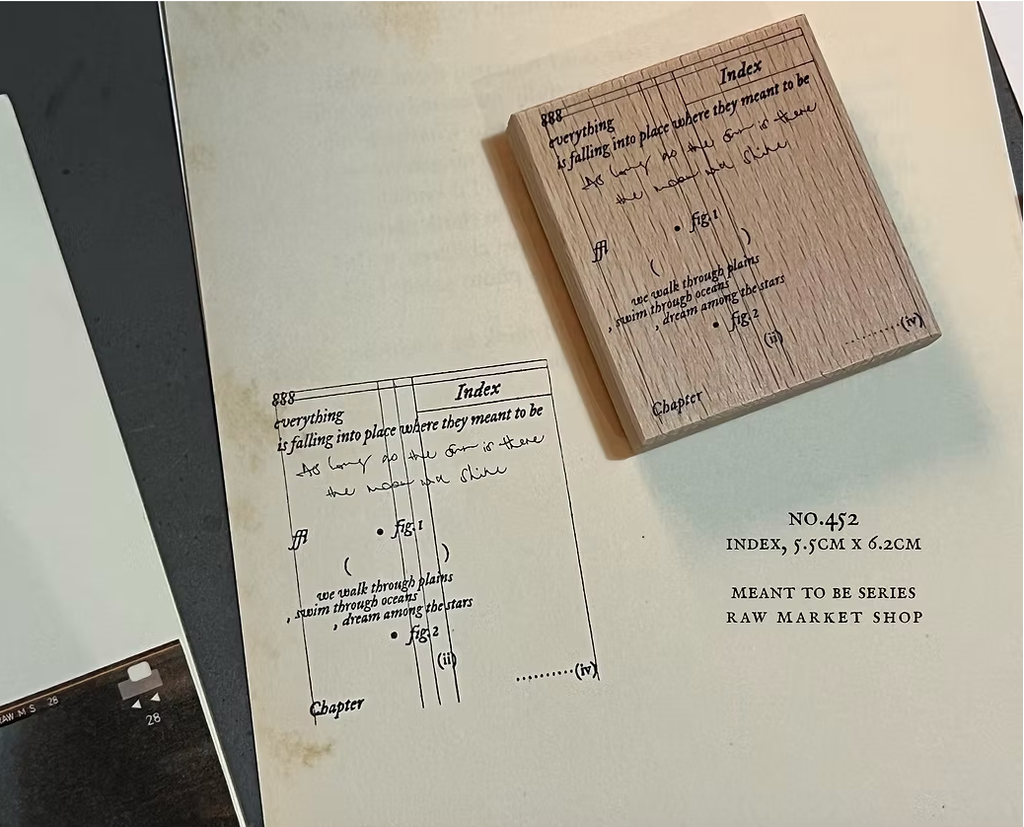 888
Index
everything
is falling into place where they meant to be
As long as the sun is there
the moon will shine
• fig.1
ffl
( )
we walk through plains
, swim through oceans
, dream among the stars
• fig.2
(ii)
..........(iv)
Chapter
888
Index
everything
is falling into place where they meant to be
As long as the sun is there
the moon will shine
• fig.1
ffl
( )
we walk through plains
, swim through oceans
, dream among the stars
• fig.2
(ii)
..........(iv)
Chapter
NO.452
INDEX, 5.5CM X 6.2CM
MEANT TO BE SERIES
RAW MARKET SHOP
RAW M S 28
28